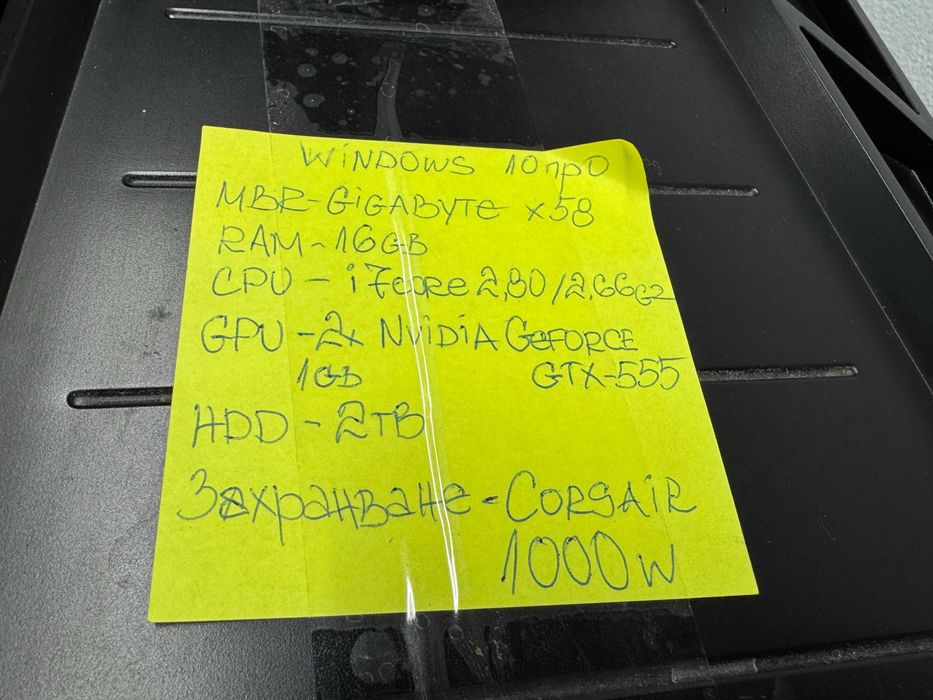 WiNDOWS 10 про
MBR-GiGABYTE x58
RAM-16GB
CPU - i7core 2,80/2,66GZ
GPU-2x NViDiA GeFORCE
1GB GTX-555
HDD - 2TB
Захранване - CORSAiR
1000W